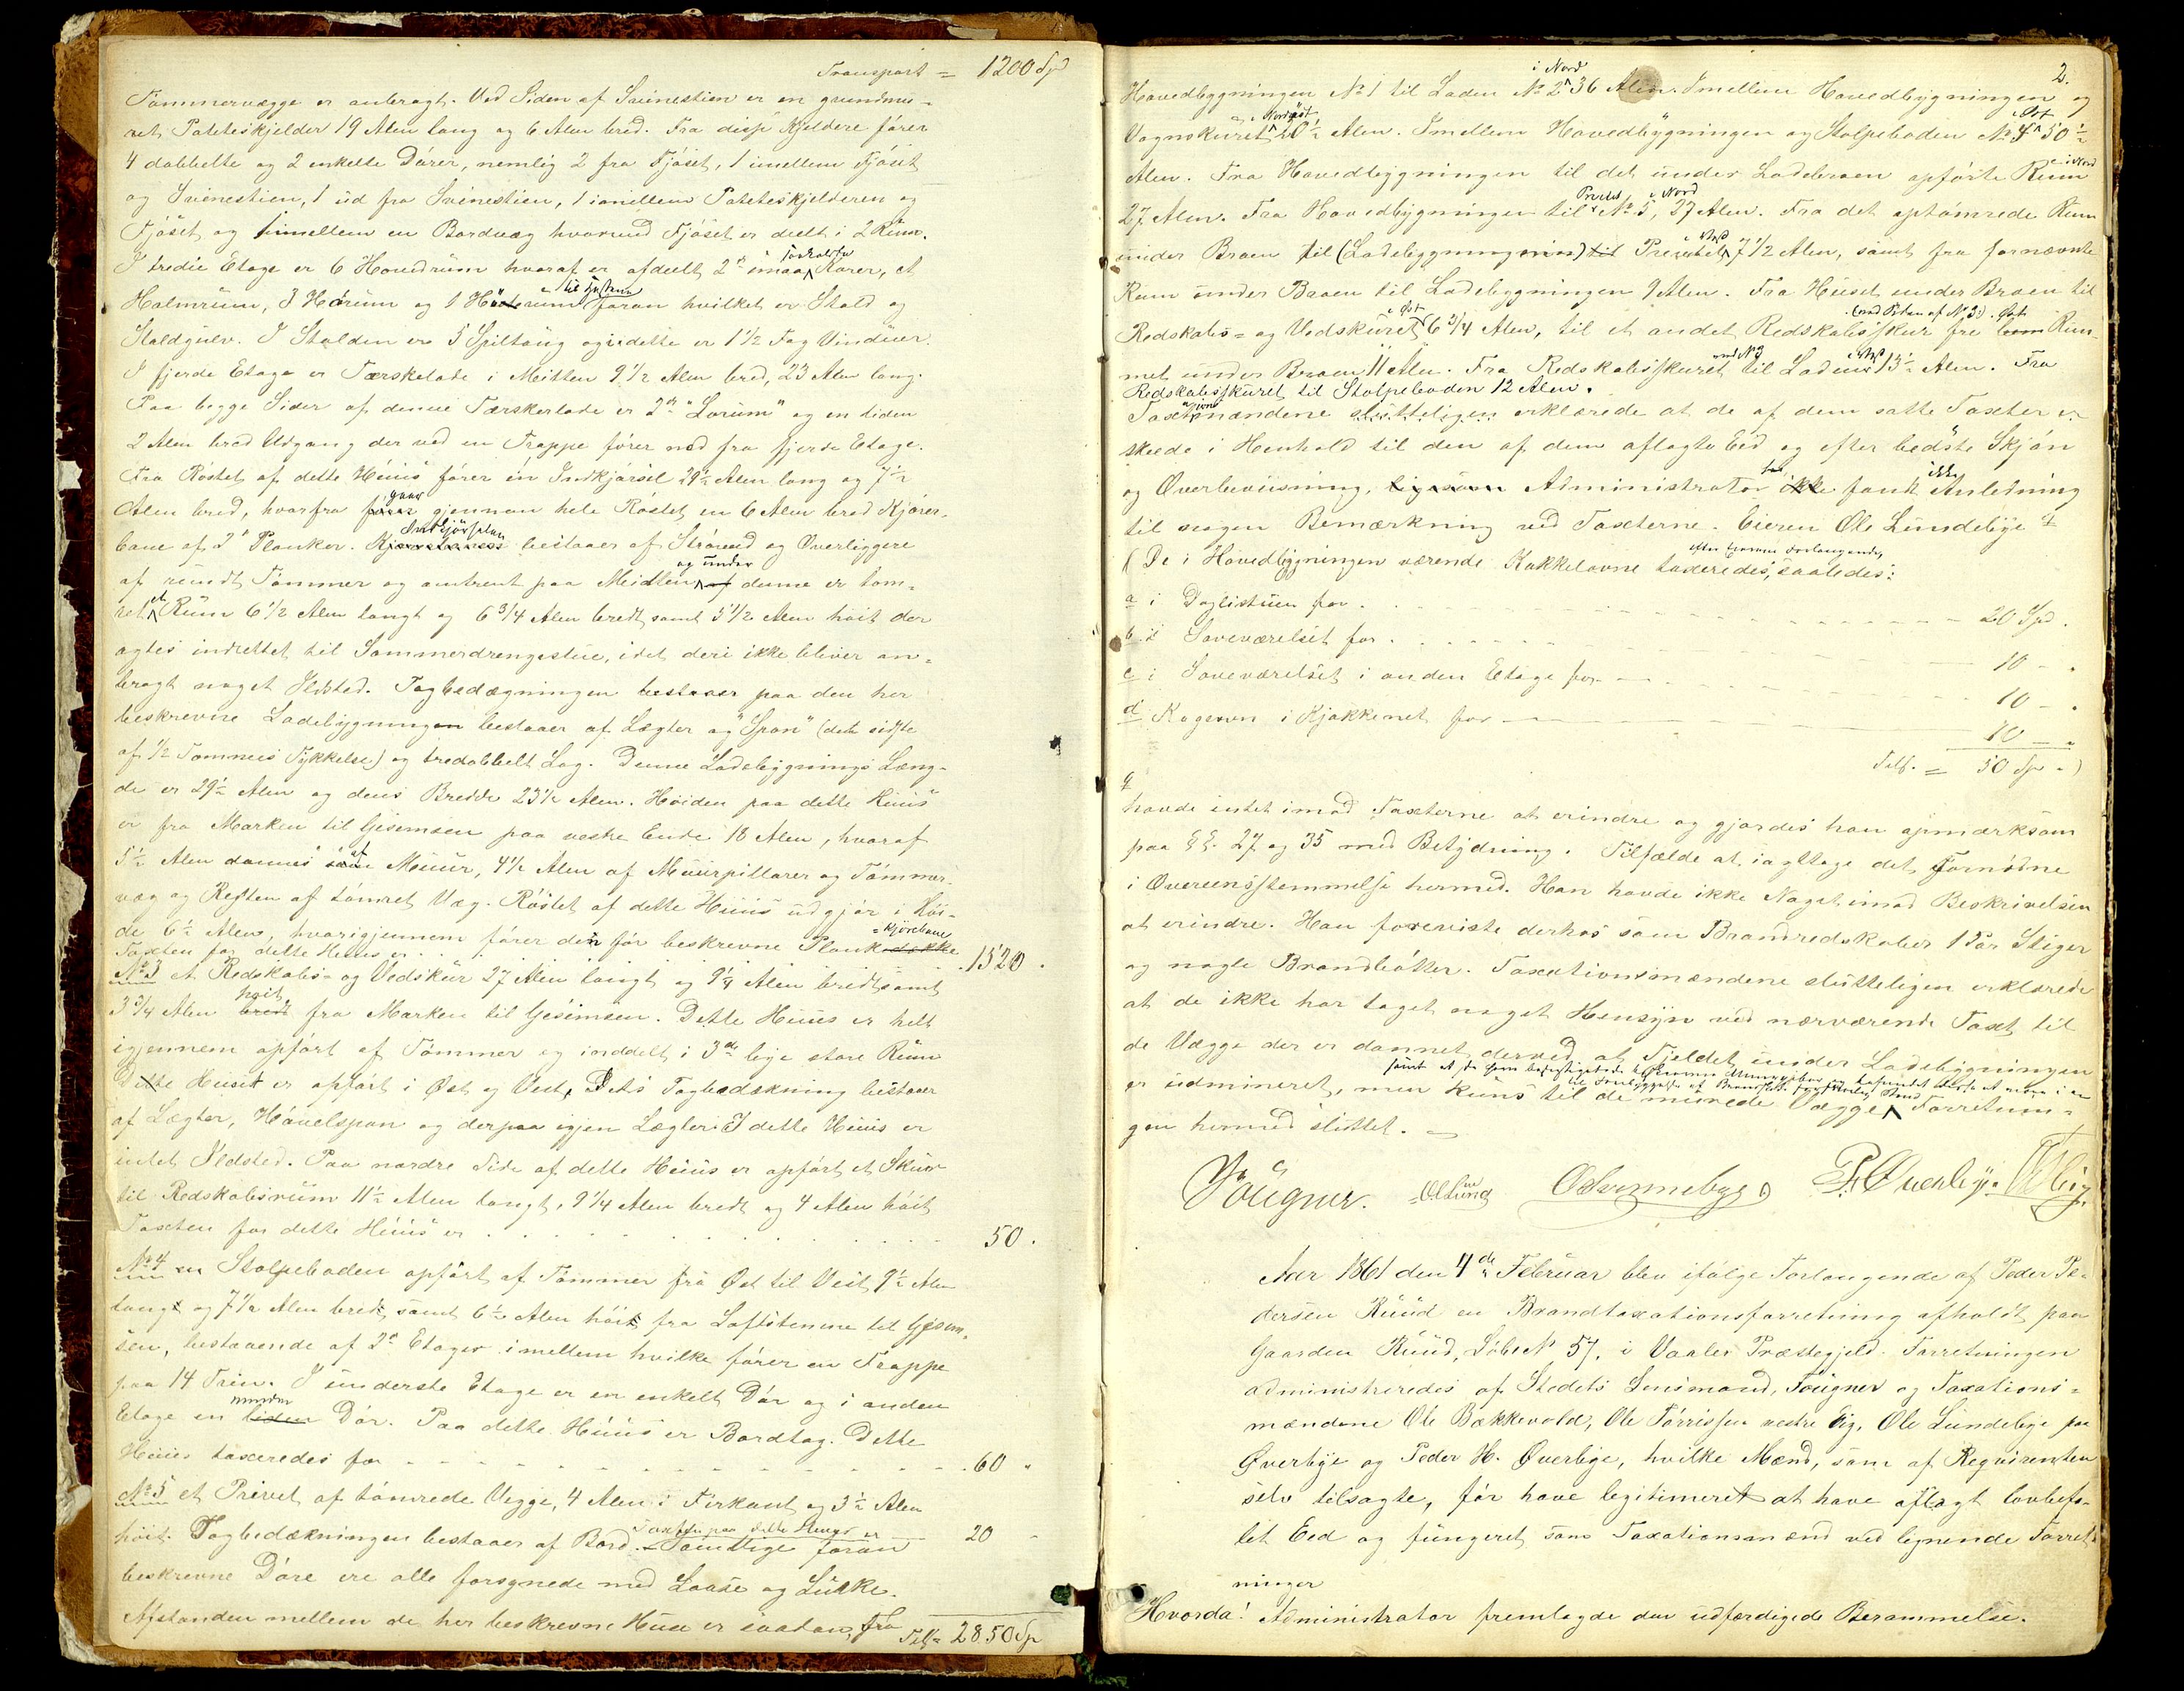 Transport = 1200 Spd
Tømmervægge er anbragt. Ved Siden af Svinestien er en grundmu-
ret Poteteskjelder 19 Alen lang og 6 Alen bred. Fra disse Kjeldere fører
4 dobbelte og 2 enkelte Døre, nemlig 2 fra Fjøset, 1 imellem Fjøset
og Svinestien, 1 ud fra Svinestien, 1 imellem Poteteskjelderen og
Fjøset og imellem en Bordvæg hvorved Fjøset er deelt i 2 Rum.
I tredie Etage er 6 Hovedrum hvoraf er afdeelt 2de smaa Karer, et
Halmrum, 3 Hørum og 1 rum foran hvilket er Stald og
Staldgulv. I Stalden er 5 Spiltaug og i dette er 1 1/2 Fag Vinduer.
I fjerde Etage er Tærskelade i Mitten 9 1/2 Alen bred, 23 Alen lang.
Paa begge Sider af denne Tærskelade er 2de "Lorum" og en liden
2 Alen bred Udgang der ved en Trappe fører ned fra fjerde Etage.
Fra Røstet af dette Huus fører en Indkjørsel 29 1/2 Alen lang og 7 1/2
Alen bred, hvorfra gaar gjennem hele Røstet en 6 Alen bred Kjøre-
bane af 2" Planker. Indkjørselen bestaaer af Strøved og Overliggere
af rundt Tømmer og omtrent paa Midten og under denne er tøm-
ret et Rum 6 1/2 Alen langt og 6 3/4 Alen bredt samt 5 1/2 Alen høit der
agtes indrettet til Sommerdrengestue, idet deri ikke bliver an-
bragt noget Ildsted. Tagbedægningen bestaaer paa den her
beskrevne Ladebygningen bestaaer af Lægter og "Spon" (det sidste
af 1/2 Tommes Tykkelse) og tredobbelt Lag. Denne Ladebygnings Læng-
de er 29 1/2 Alen og dens Bredde 23 1/2 Alen. Høiden paa dette Huus
er fra Marken til Gesimsen paa vestre Ende 18 Alen, hvoraf
5 1/2 Alen dannes af Muur, 4 1/2 Alen af Muurpillarer og Tømmer-
væg og Resten af tømret Væg. Røstet af dette Huus udgjør i Høi-
de 6 1/2 Alen, hvorigjennem fører den før beskrevne Plank=kjørebane
Taxten for dette Huus er . . . 1520.
No 3 et Redskabs- og Vedskur 27 Alen langt og 9 1/4 Alen bredt samt
3 3/4 Alen høit fra Marken til Gesimsen. Dette Huus er helt
igjennem opført af Tømmer og inddelt i 3de lige store Rum
Dette Huset er opført i Øst og Vest, Dets Tagbedækning bestaaer
af Lægter, Høvelspon og derpaa igjen Lægter. I dette Huus er
intet Ildsted. Paa nordre Side af dette Huus er opført et Skuur
til Redskabsrum 11 1/2 Alen langt, 9 1/4 Alen bredt og 4 Alen høit
Taxten for dette Huus er . . . 50.
No 4 en Stolpeboden opført af Tømmer fra Øst til Vest, 9 1/2 Alen
lang og 7 1/2 Alen bred, samt 6 1/2 Alen høi fra Loftstenene til Gesim-
sen, bestaaende af 2de Etager imellem hvilke fører en Trappe
paa 14 Trin. I underste Etage er en enkelt Dør og i anden
Etage en mindre Dør. Paa dette Huus er Bordtag. Dette
Huus taxeredes for - - - 60 "
No 5 et Privet af tømrede Vegge, 4 Alen i Firkant og 3 1/2 Alen
høit. Tagbedækningen bestaaer af Bord. Taxten paa dette Huus er 20 -
Samtlige foran
beskrevne Døre ere alle forsynede med Laase og Lukke.
Afstanden mellem de her beskrevne Huse er saadan, fra
Tils= 2850 Sp
2.
Hovedbygningen No 1 til Laden No 2 i Nord 36 Alen. Imellem Hovedbygningen og
Vognskuret i Nordøst 20 1/2 Alen. Imellem Hovedbygningen og Stolpeboden No 4 i Øst 50 1/2
Alen. Fra Hovedbygningen til det under Ladebroen opførte Rum i Nord
27 Alen. Fra Hovedbygningen til Privetet No 5, i Nord 27 Alen. Fra det optømrede Rum
under Broen til (Ladebygningen) Privetet i Vest 7 1/2 Alen, samt fra fornævnte
Rum under Broen til Ladebygningen 9 Alen. Fra Huset under Broen til
Redskabs- og Vedskuret i Øst 6 3/4 Alen, til et andet Redskabsskur (ved Siden af No 3) i Øst fra Rum-
met under Broen 11 Alen. Fra Redskabsskuret ved No 3 til Laden i Vest 13 1/2 Alen. Fra
Redskabsskuret til Stolpeboden 12 Alen.
Taxationsmændene slutteligen erklærede at de af dem satte Taxter er
skeede i Henhold til den af dem aflagte Eed og efter bedste Skjøn
og Overbeviisning, Administrator fandt ikke Anledning
til nogen Bemærkning ved Taxterne. Eieren Ole Lundebye
(De i Hovedbygningen værende Kakkelovne taxeredes, efter Eierens Forlangende, saaledes:
a i Daglistuen for . . . 20 Spd.
b i Soveværelset for . . . 10 - "
c i Soveværelset i anden Etage for - - - 10 - "
d Kogeovn i Kjøkkenet for - - - 10 - "
Tils. = 50 Sp ")
havde intet imod Taxterne at erindre og gjordes han opmærksom
paa §§. 27 og 35 med Betydning. Tilfælde at iagttage det Fornødne
i Overeensstemmelse hermed. Han havde ikke Noget imod Beskrivelsen
at erindre. Han foreviste derhos som Brandredskaber 1 Par Stiger
og nogle Brandbøtter. Taxationsmændene slutteligen erklærede
at de ikke har taget noget Hensyn ved nærværende Taxt til
de Vægge der er dannet derved at Fjeldet under Ladebygningen
er udmineret, men kuns til de murede Vægge Forretnin-
gen hermed sluttet.
Fougner. OLund OSvennebye P. Øverbye
Aar 1861 den 4de Februar blev ifølge Forlangende af Peder Pe-
dersen Ruud en Brandtaxationsforretning afholdt paa
Gaarden Ruud, Løbe No 57, i Vaaler Præstegjeld. Forretningen
administreredes af Stedets Lensmand, Fougner og Taxations-
mændene Ole Bakkevold, Ole Tørrissen vestre Eig, Ole Lundebye paa
Øverbye og Peder H. Øverbye, hvilke Mænd, som af Requirenten
selv tilsagte, før have legitimeret at have aflagt lovbefa-
let Eed og fungeret som Taxationsmænd ved lignende Forret-
ninger
Hvorda! Administrator fremlagde den udfærdigede Berammelse.